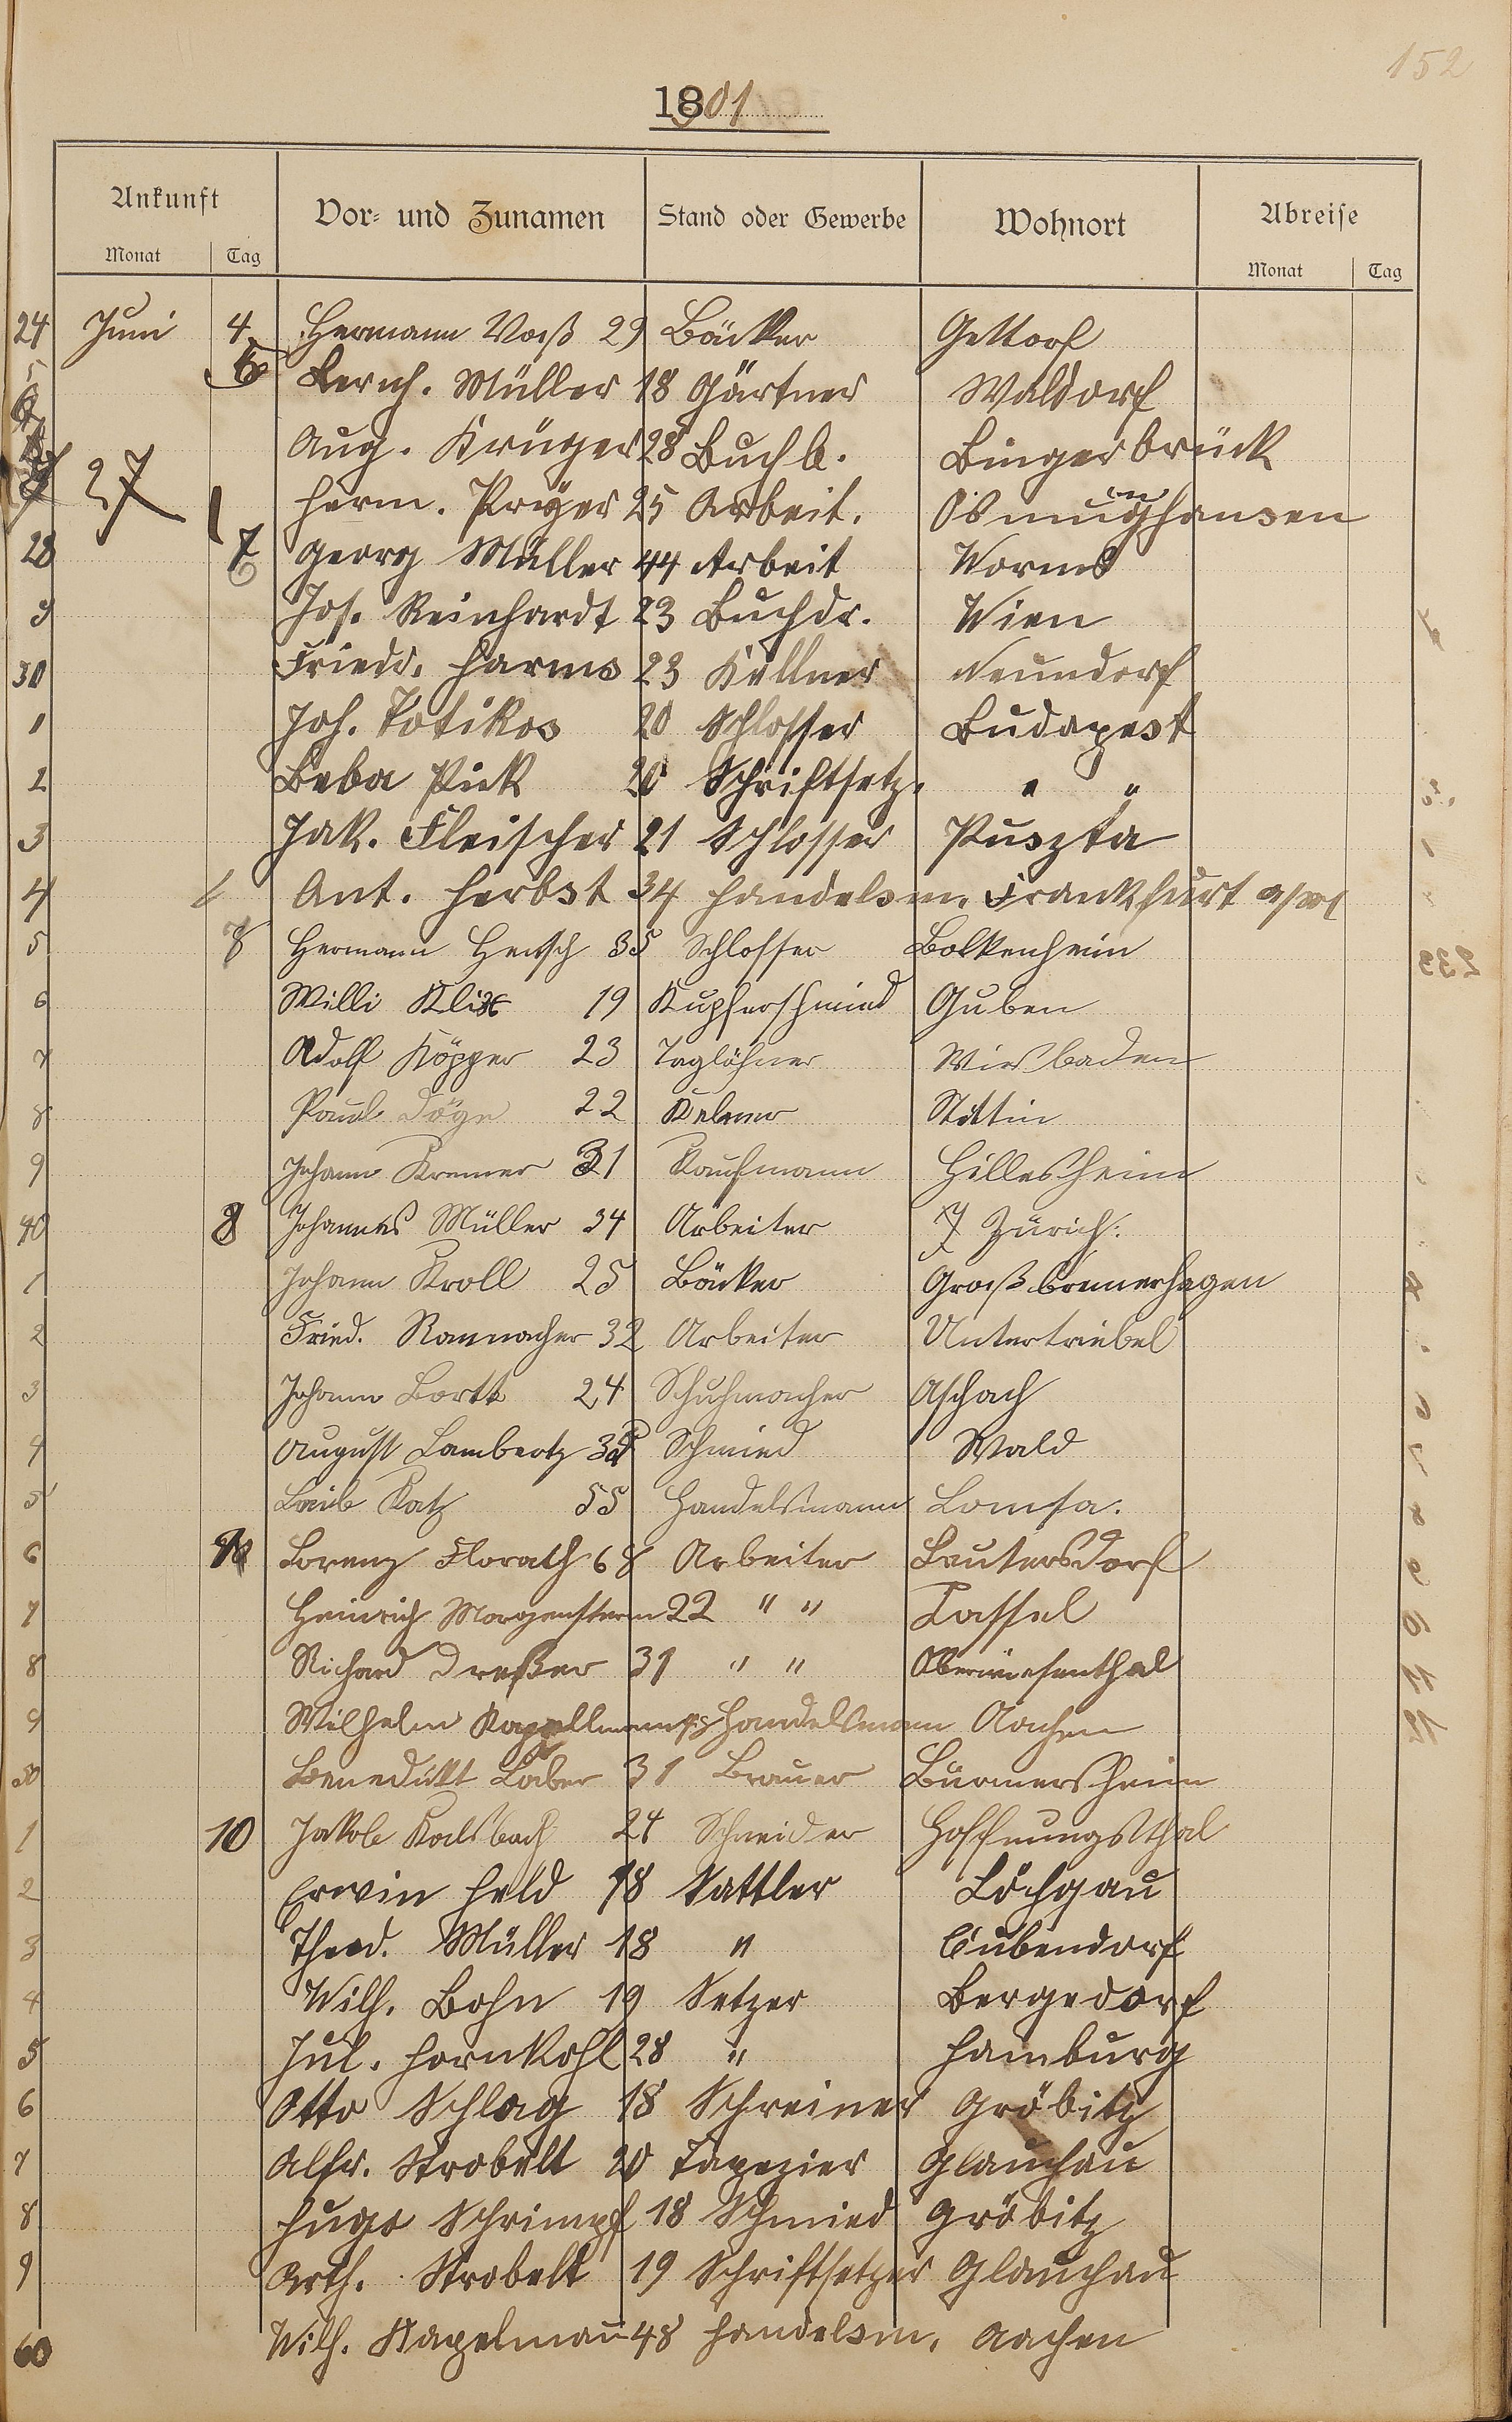 152
1901
Ankunft Vor- und Zunamen Stand oder Gewerbe Wohnort Abreise
Monat Tag Monat Tag
24 Juni 4 Hermann Voß 29 Bäcker Gettorf
5 Bernh. Müller 18 Gärtner Waldorf
Aug. Krüger 28 Buchb. Bingerbrück
27 Herm. Pryer 25 Arbeit.
28 7 Georg Müller 44 Arbeit Worms
9 Jos. Reinhardt 23 Buchdr. Wien
30 Friedr. Harms 23 Kellner Neundorf
1 Joh. Totikos 20 Schlosser Budapest
2 Beba Pick 20 Schriftsetz. " "
3 Jak. Fleischer 21 Schlosser Puszta
4 Ant. Herbst 34 Handelsm. Frankfurt a/M
5 8 Hermann Hensch 35 Schlosser Bolkenhein
6 Willi Klix 19 Kupferschmied Guben
7 Adolf Köpper 23 Taglöhner Wiesbaden
8 Paul Döge 22 Kelner Stettin
9 Johann Kremer 31 Kaufmann Hillesheim
40 8 Johannes Müller 34 Arbeiter Zürich.
1 Johann Kroll 25 Bäcker Groß bremerhagen
2 Fried. Rannacher 32 Arbeiter Untertriebel
3 Johann Bartk 24 Schuhmacher Aschach
4 August Lambertz Schmied Wald
5 Leib Katz 55 Handelsmann Lomsa.
6 Lorenz Florath 68 Arbeiter Leutersdorf
7 Heinrich Morgenstern 22 " " Cassel
8 Richard Dreßer 31 " " Oberwiesenthal
9 Wilhelm Kappellmann 48 Handelsmann Aachen
50 Benedikt Laber 31 Brauer Bürmersheim
1 10 Jakob Kalsbach 24 Schneider Hoffnungsthal
2 Erwin Held 18 Sattler Löchgau
3 Theod. Müller 18 " Bubendorf
4 Wilh. Bohn 19 Setzer Bergedorf
5 Jul. Hornkohl 28 " Hamburg
6 Otto Schlag 18 Schreiner Gröbitz
7 Alfr. Strobelt 20 Tapezier Glauchau
8 Hugo Schrimpf 18 Schmied Gröbitz
9 Arth. Strobelt 19 Schriftsetzer Glauchau
60 Wilh. Kapelman̄ 48 Handelsm. Aachen